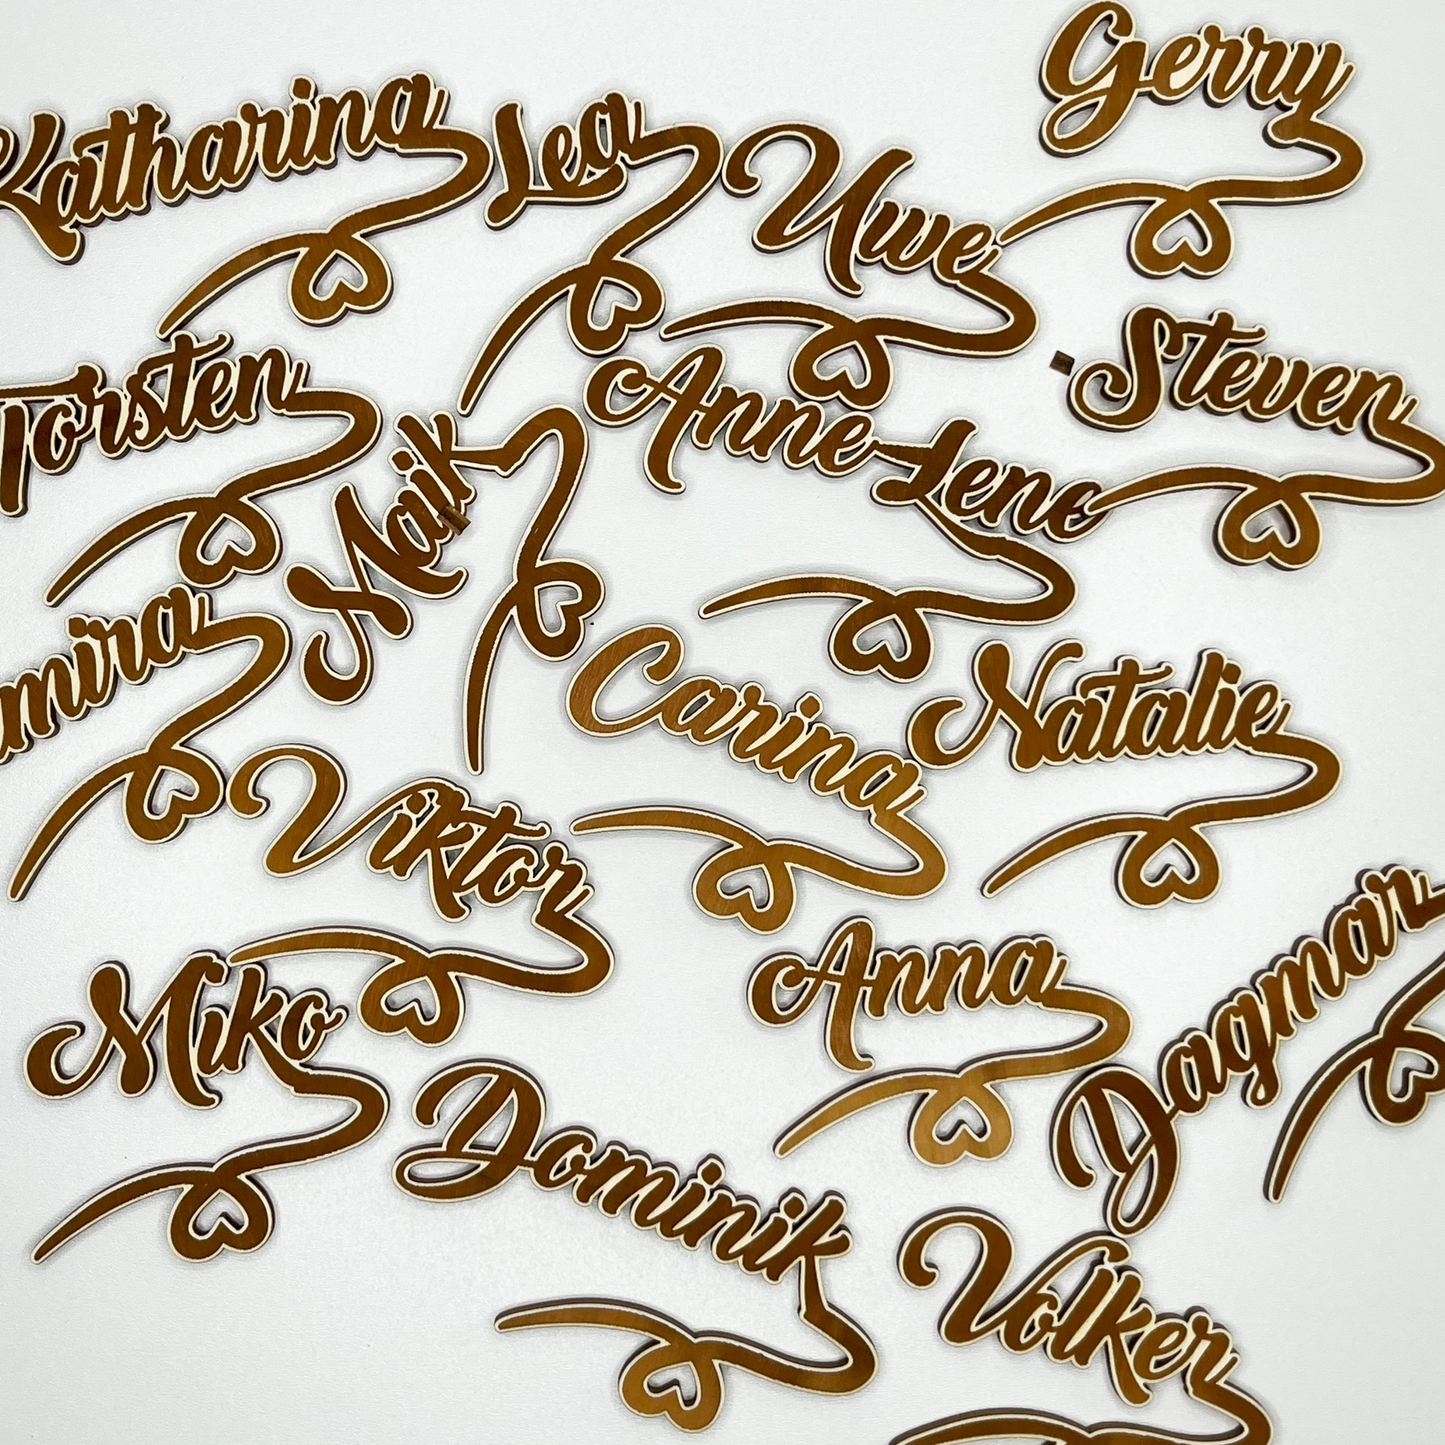 Gerry
Katharina
Lea
Uwe
Steven
Torsten
Maik
Anne-Lene
mira
Carina
Natalie
Viktor
Dagmar
Anna
Miko
Dominik
Volker